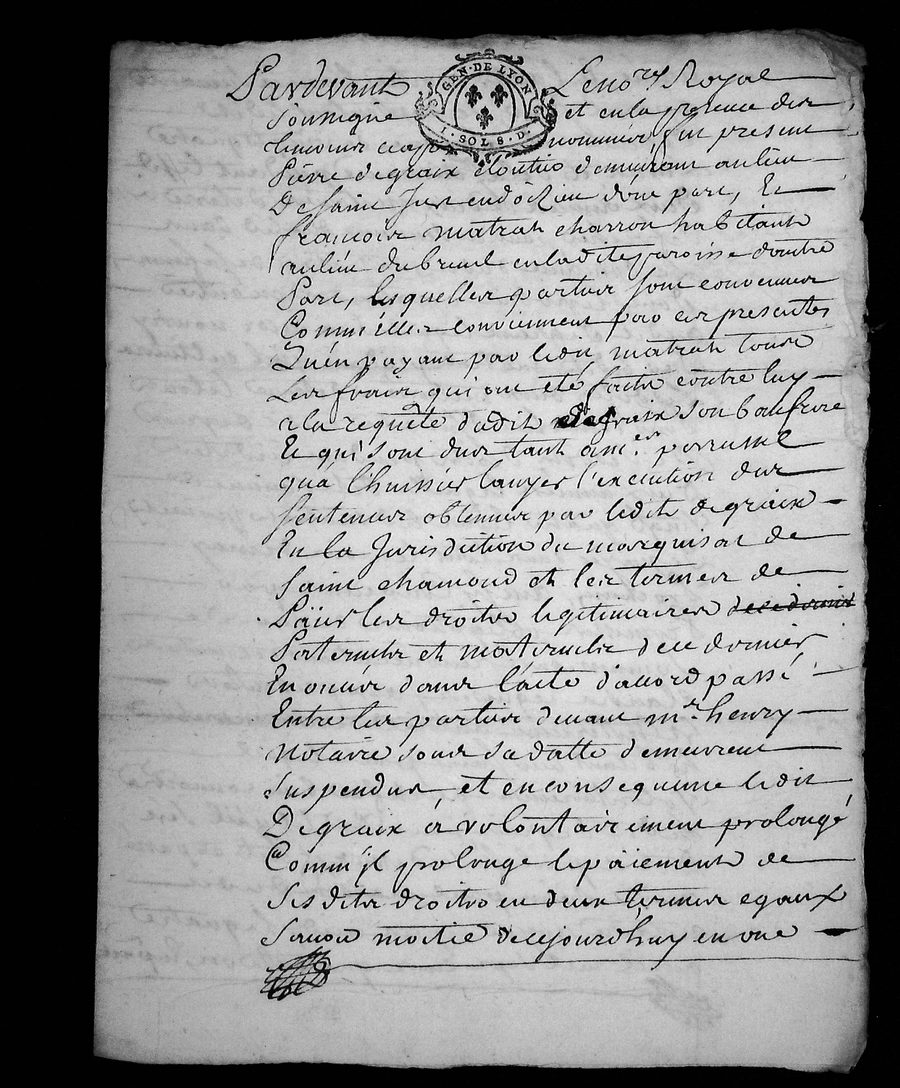 Pardevant Le nore Royal
GEN · DE LYON
I · SOL 8 · D ·
Soussigné et en la presence des
temoins cy ap nommés fut present
Pierre degraix demeurant au lieu
De Saint Just en doizieu d'une part, Et
françois matrat charron habitant
au lieu du breuil en ladite paroisse d'autre
Part, lesquelles parties sont convenues
Comm'elles conviennent par ces presentes
Qu'en payant par ledit matrat tous
Les fraix qui ont été faits contre luy
a la requête dudit degraix son beaufrere
Et qui sont dus tant a me. perrussel
qu'a l'huissier lanyer l'execution des
sentences obtenues par ledit degraix
En la Jurisdiction du marquisat de
Saint chamond et les termes de
Païer les droits legitimaires
Paternels et maternels de ce dernier
Enoncés dans l'acte d'accord passé
Entre les parties devant mr. henry
Notaire sous sa datte demeurent
Suspendus, et en consequence ledit
Degraix a volontairement prolongé
Comm'il prolonge le païement de
Ses dits droits en deux termes egaux
Scavoir moitié de ce jourd'huy en une